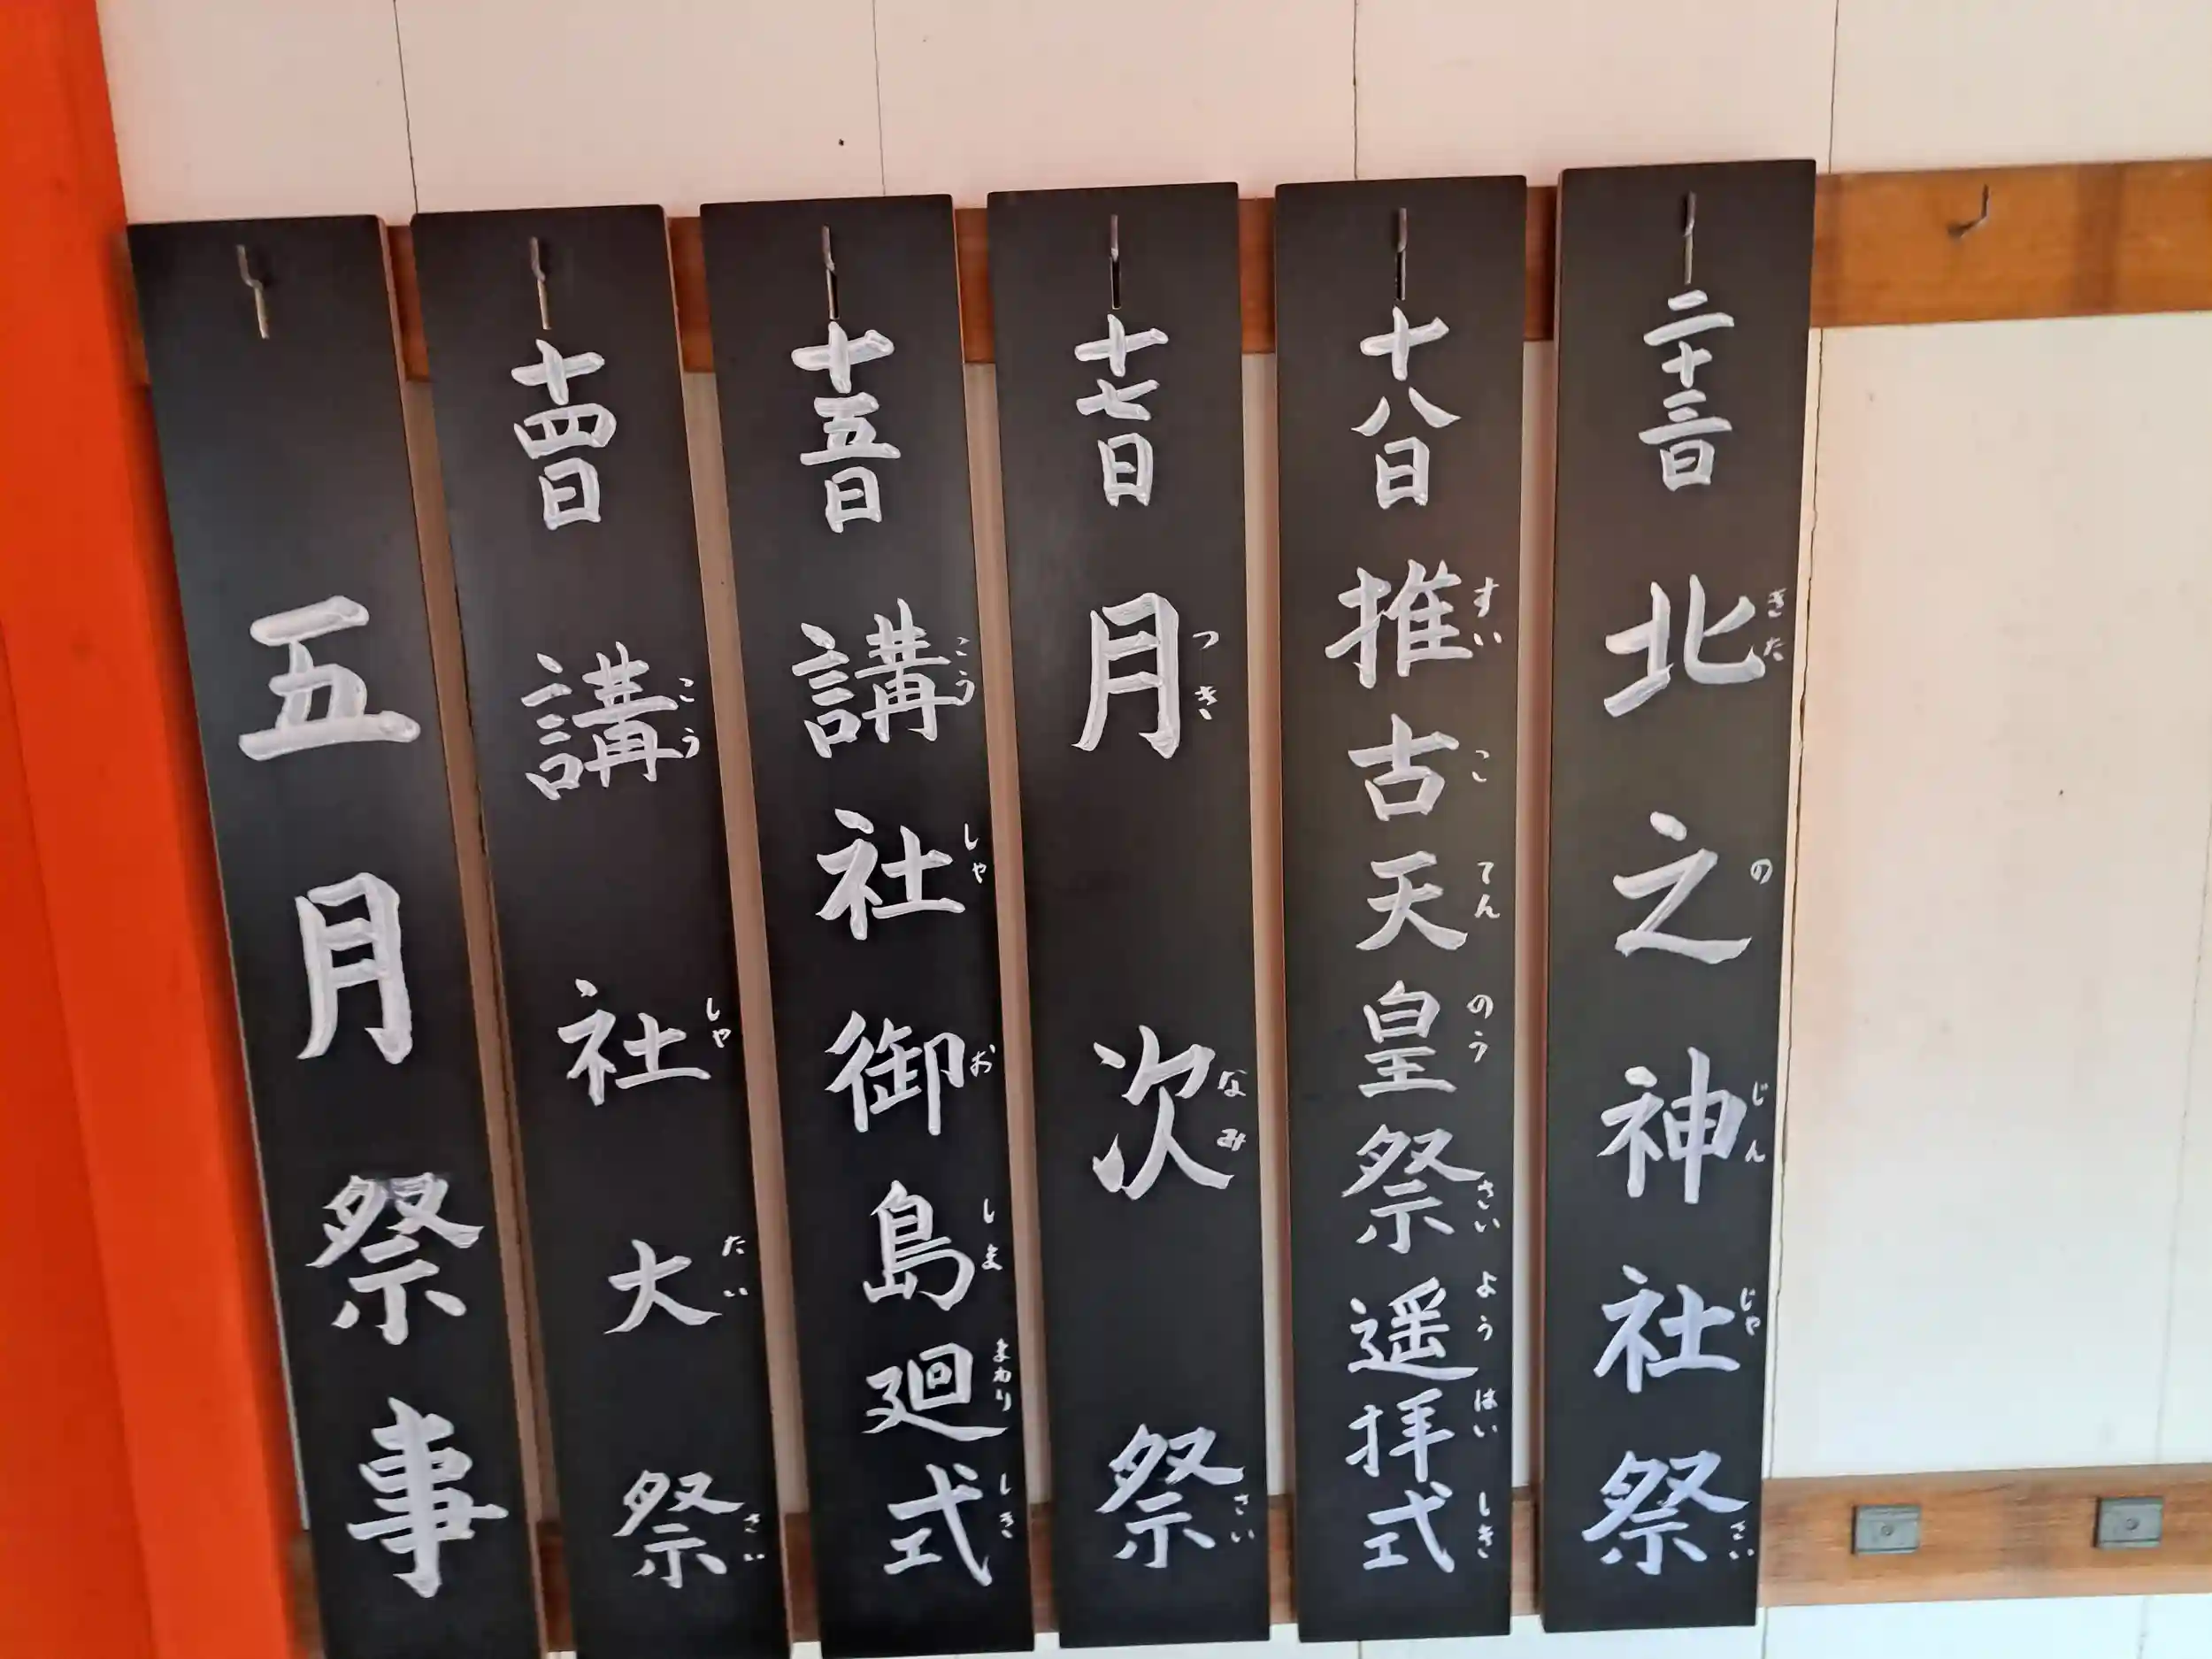 五月祭事
十四日 講社大祭
こうしゃたいさい
十五日 講社御島廻式
こうしゃおしままわりしき
十七日 月次祭
つきなみさい
十八日 推古天皇祭遥拝式
すいこてんのうさいようはいしき
二十三日 北之神社祭
きたのじんじゃさい